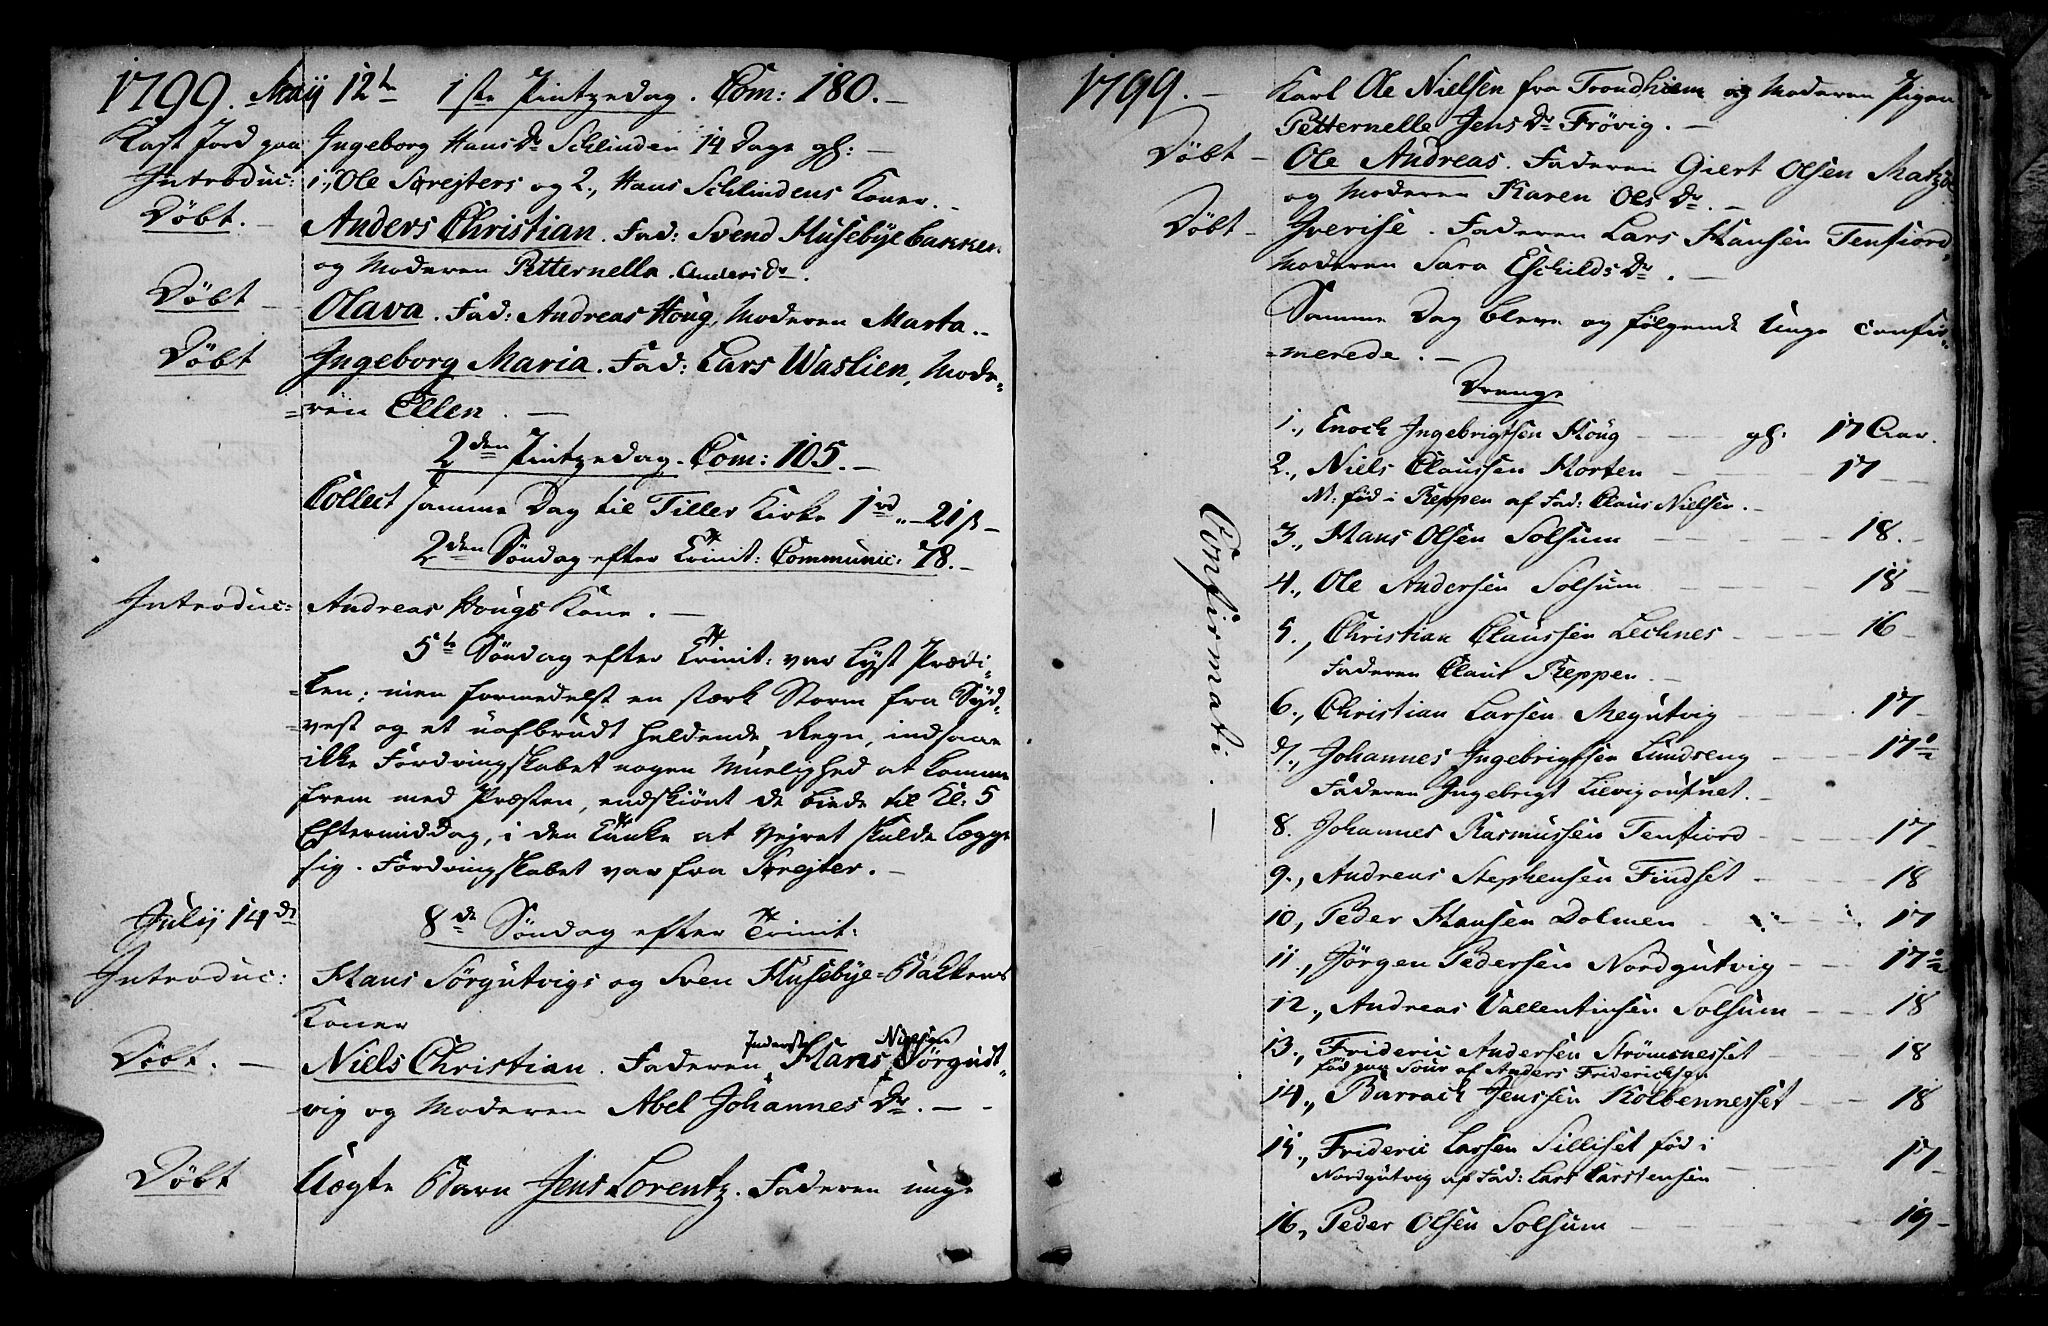 1799. Maij 12te 1ste Pintzedag. Com: 180. –
Kast Jord paa Ingeborg Hans Dr Schlinden 14 Dage gl: –
Introduc: 1., Ole Sørejters og 2., Hans Schlindens Koner. –
Døbt. – Anders Christian. Fad: Svend Husebye bakken
og Moderen Petternella Anders Dr.
Døbt – Olava. Fad: Andreas Houg, Moderen Marta. –
Døbt Ingeborg Maria. Fad: Lars Wastien, Mode=
=ren Ellen. –
2den Pintzedag. Com: 105. –
Collect samme Dag til Tiller Kirke 1 rd „ – 21 ß –
2den Søndag efter Trinit: Communic: 78. –
Introduc: Andreas Hougs Kone. –
5te Søndag efter Trinit: var Lyst Prædi=
=ken; men formedelst en stærk Storm fra Syd=
=vest og et uafbrudt heldende Regn, indsaae
ikke Fordringskabet nogen Muelighed at komme
frem med Præsten, endskiønt de biede til Kl: 5
Eftermiddag, i den Tanke at Vejret skulde lægge
sig. Fordringskabet var fra Sørejter. –
Julij 14de 8de Søndag efter Trinit:
Introduc: Hans Sørgutvigs og Sven Husebye=Bakkens
Koner
Døbt. – Niels Christian. Faderen Hans Nielsen Sørgudt=
vig og Moderen Abel Johannes Dr. – –
Døbt Uægte Barn Jens Lorentz. Faderen unge
1799. – Karl Ole Nielsen fra Trondhiem og Moderen Pigen
Petternelle Jens Dr Frövig. –
Døbt – Ole Andreas. Faderen Giert Olsen
og Moderen Karen Ols Dr. –
Døbt – Iverise. Faderen Lars Hansen Tenfiord,
Moderen Sara Eschilds Dr. –
Samme Dag bleve og følgende Unge confir=
=merede. –
Confirmati. –
Drenge
1., Enoch Ingebrigtsen Houg – – gl: 17 Aar.
2., Niels Claussen Horten – – 17 –
N: fød i Reppen af Fad: Claus Nielsen. –
3., Hans Olsen Solsum – – 18. –
4., Ole Andersen Solsum – – 18 –
5., Christian Claussen Lechnes – – 16 –
Faderen Claus Reppen. –
6., Christian Larsen Megutvig – – 17 –
7., Johannes Ingebrigtsen Lundseng – 17 1/2
Faderen Ingebrigt –
8. Johannes Rasmussen Tenfiord – – 17 –
9., Andreas Stephensen Findset – – 18
10, Peder Hansen Dolmen – – 17
11., Jørgen Pedersen Nordgutvig – – 17 1/2
12., Andreas Vallentinsen Solsum – – 18
13., Frideric Andersen Strømsnesset – – 18
fød paa Sour af Anders Friderichsen
14., Barrach Jenssen Kolbennesset – – 18
15., Frideric Larsen Silliset fød i
Nordgutvig af Fad: Lars Carstensen – – 17 –
16., Peder Olsen Solsum – – 19 –